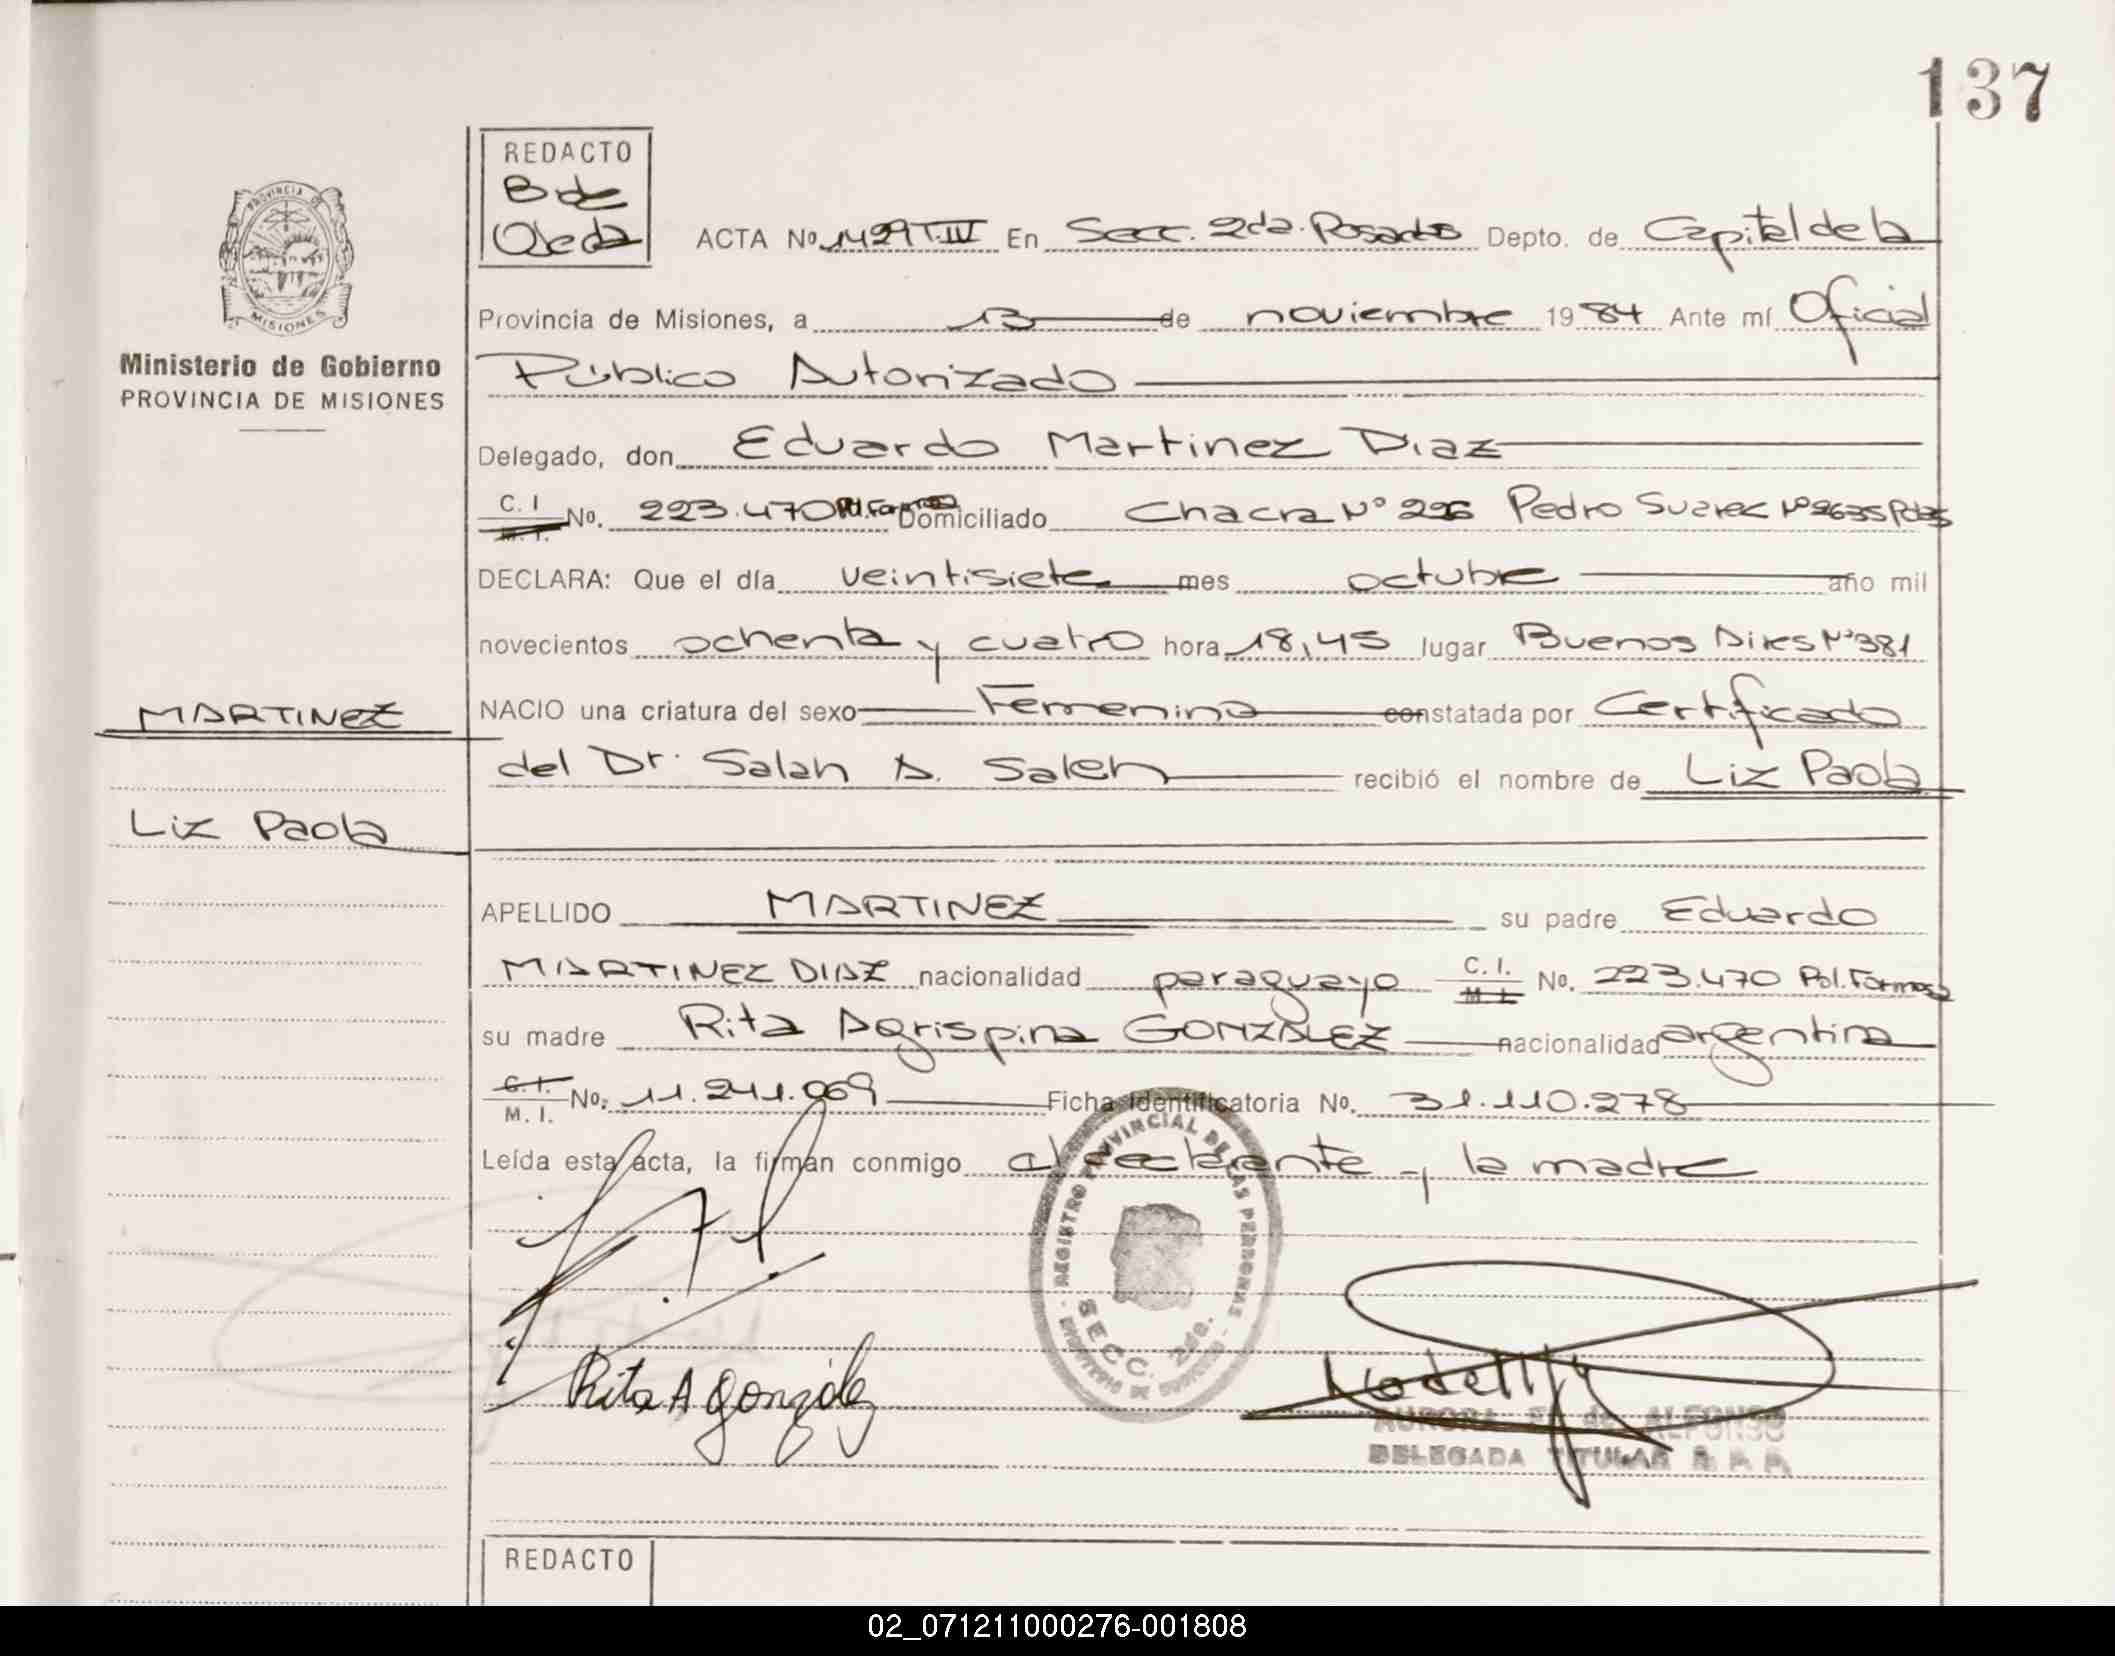 137
REDACTO
B de
Ojeda
PROVINCIA DE
MISIONES
Ministerio de Gobierno
PROVINCIA DE MISIONES
ACTA No 1429 T.IV En Secc. 2da. Posadas Depto. de Capital de la
Provincia de Misiones, a 13 de noviembre 1984 Ante mí Oficial
Público Autorizado
Delegado, don Eduardo Martinez Diaz
C. I M. I. No. 223.470 Pol. Formosa Domiciliado Chacra Nº 226 Pedro Suarez Nº 2635 Pdas
DECLARA: Que el día veintisiete mes octubre año mil
novecientos ochenta y cuatro hora 18,45 lugar Buenos Aires Nº 381
MARTINEZ
NACIO una criatura del sexo Femenino constatada por Certificado
del Dr. Salah A. Saleh recibió el nombre de Liz Paola
Liz Paola
APELLIDO MARTINEZ su padre Eduardo
MARTINEZ DIAZ nacionalidad paraguayo C. I. M. I. No. 223.470 Pol. Formosa
su madre Rita Agrispina GONZALEZ nacionalidad argentina
C. I. M. I. No. 11.241.069 Ficha Identificatoria No. 31.110.278
Leída esta acta, la firman conmigo el declarante y la madre
REGISTRO PROVINCIAL DE LAS PERSONAS
SECC. 2da.
MINISTERIO DE GOBIERNO
Rita A González
AURORA de ALFONSO
DELEGADA TITULAR R. P. P.
REDACTO
02_071211000276-001808